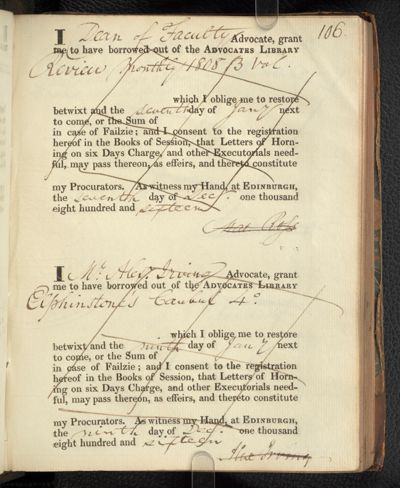 106.
I Dean of Faculty Advocate, grant
me to have borrowed out of the ADVOCATES LIBRARY
Review, Monthly 1808 /3 vol.
which I oblige me to restore
betwixt and the seventh day of Jany next
to come, or the Sum of
in case of Failzie; and I consent to the registration
hereof in the Books of Session, that Letters of Horn-
ing on six Days Charge, and other Executorials need-
ful, may pass thereon, as effeirs, and thereto constitute
my Procurators. As witness my Hand, at EDINBURGH,
the seventh day of Decr. one thousand
eight hundred and sixteen
I Mr. Alexr Irving Advocate, grant
me to have borrowed out of the ADVOCATES LIBRARY
Elphinstone's Caubul 4o
which I oblige me to restore
betwixt and the ninth day of Jany next
to come, or the Sum of
in case of Failzie; and I consent to the registration
hereof in the Books of Session, that Letters of Horn-
ing on six Days Charge, and other Executorials need-
ful, may pass thereon, as effeirs, and thereto constitute
my Procurators. As witness my Hand, at EDINBURGH,
the ninth day of Decr. one thousand
eight hundred and sixteen
Alex Irving